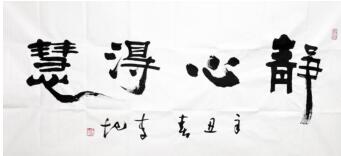 静心得慧
辛丑春李